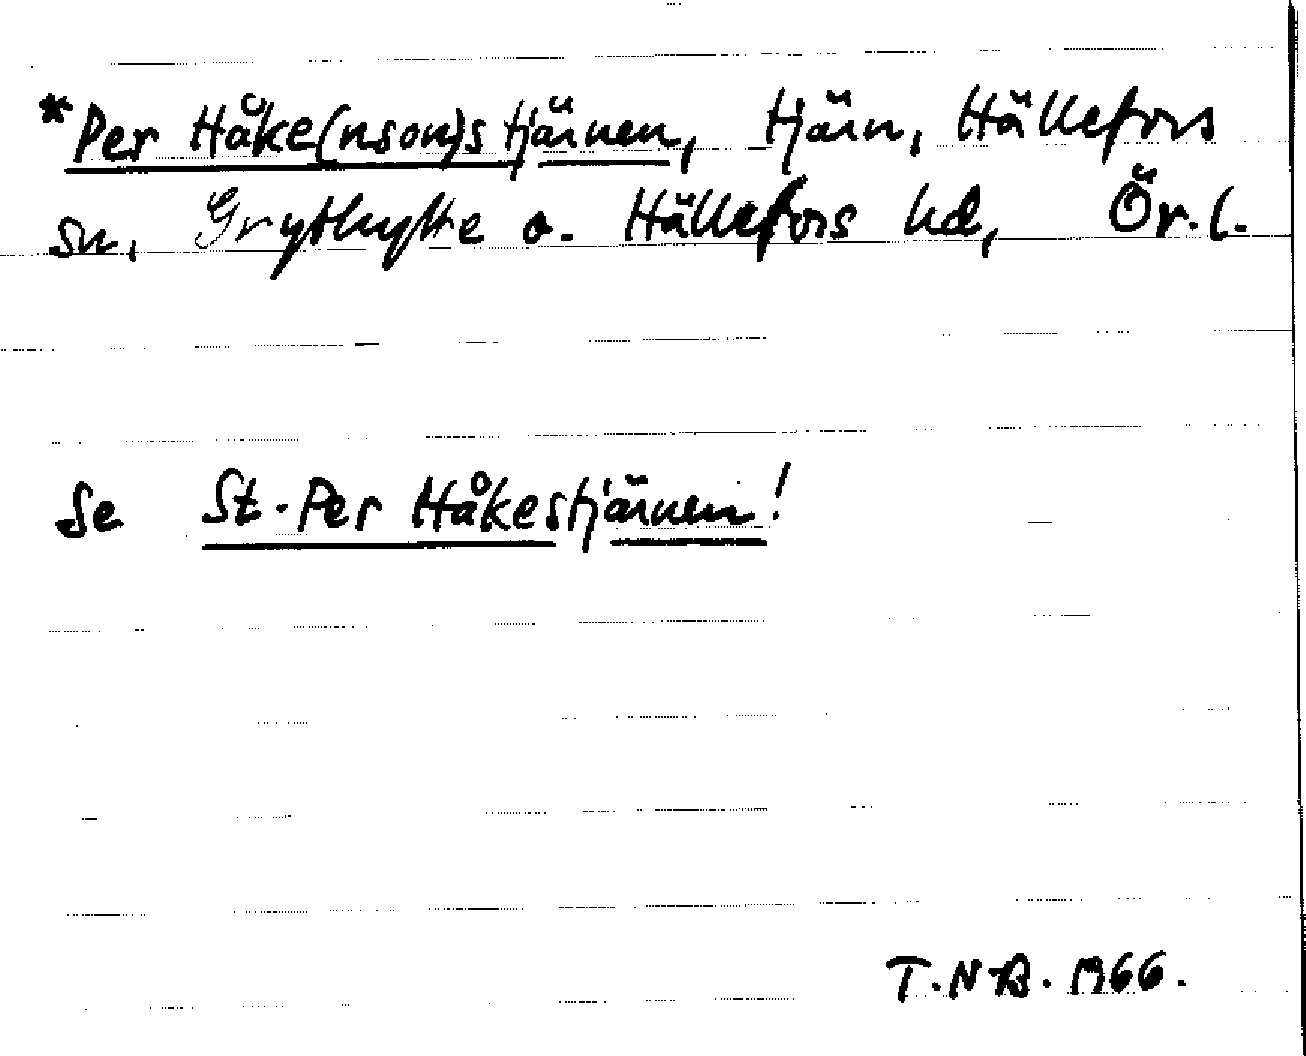 *Per Håke(nson)stjärnen, tjärn, Hällefors
sn, Grythytte o. Hällefors hd, Ör. l.
Se St. Per Håkestjärnen!
T.N.B. 1966.